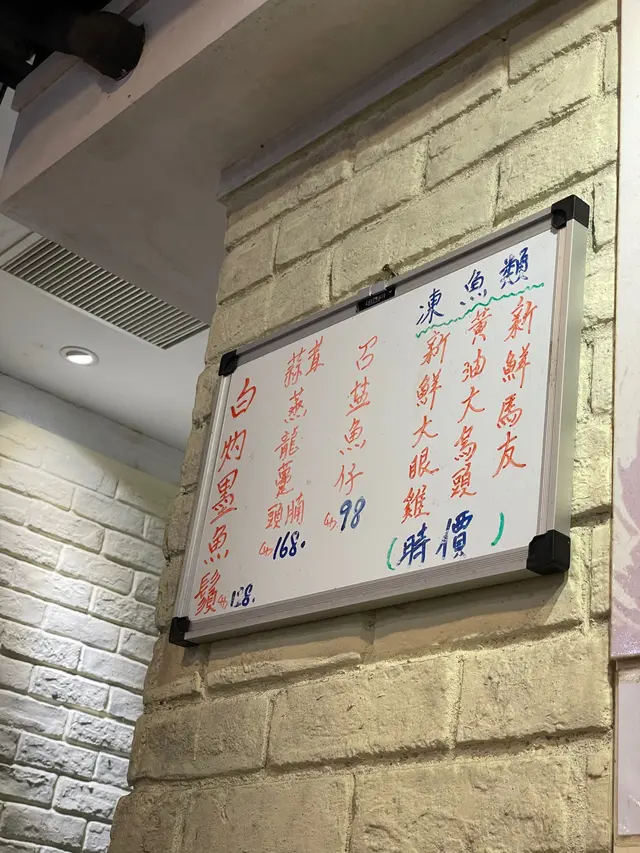 凍魚類
新鮮馬友
黃油大烏頭
新鮮大眼雞
(時價)
魚仔 $98
蒜茸蒸龍躉頭腩 $168.
白灼墨魚鬚 $128.